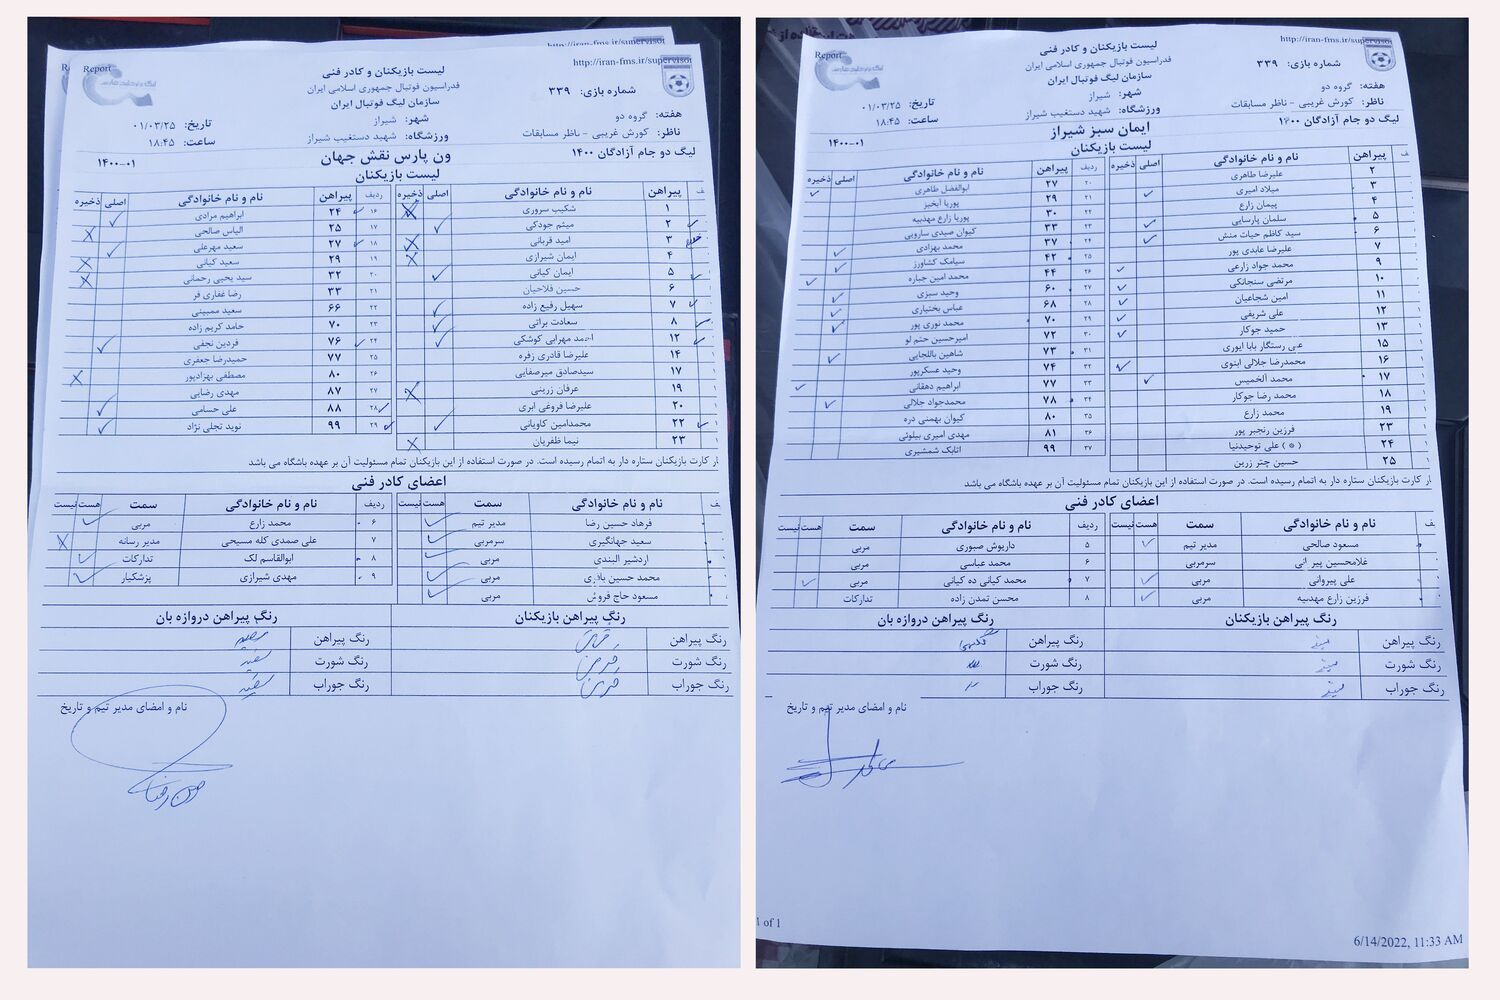 http://iran-fms.ir/supervisor
Report
لیست بازیکنان و کادر فنی
فدراسیون فوتبال جمهوری اسلامی ایران
سازمان لیگ فوتبال ایران
شماره بازی: ۳۳۹
هفته: گروه دو
شهر: شیراز
تاریخ: ۰۱/۰۳/۲۵
ناظر: کورش غریبی - ناظر مسابقات
ورزشگاه: شهید دستغیب شیراز
ساعت: ۱۸:۴۵
لیگ دو جام آزادگان ۱۴۰۰
ون پارس نقش جهان
۱۴۰۰-۰۱
لیست بازیکنان
پیراهن نام و نام خانوادگی اصلی ذخیره
۱ شکیب سروری
۲ میثم جودکی
۳ امید قربانی
۴ ایمان شیرازی
۵ ایمان کیانی
۶ حسین فلاحیان
۷ سهیل رفیع زاده
۸ سعادت براتی
۱۲ احمد مهرابی کوشکی
۱۴ علیرضا قادری زفره
۱۷ سیدصادق میرصفایی
۱۹ عرفان زرینی
۲۰ علیرضا فروغی ابری
۲۲ محمدامین کاویانی
۲۳ نیما ظفریان
ردیف پیراهن نام و نام خانوادگی اصلی ذخیره
۱۶ ۲۴ ابراهیم مرادی
۱۷ ۲۵ الیاس صالحی
۱۸ ۲۷ سعید مهرعلی
۱۹ ۲۹ سعید کیانی
۲۰ ۳۲ سید یحیی رحمانی
۲۱ ۳۳ رضا غفاری فر
۲۲ ۶۶ سعید ممبینی
۲۳ ۷۰ حامد کریم زاده
۲۴ ۷۶ فردین نجفی
۲۵ ۷۷ حمیدرضا جعفری
۲۶ ۸۰ مصطفی بهزادپور
۲۷ ۸۷ مهدی رضایی
۲۸ ۸۸ علی حسامی
۲۹ ۹۹ نوید تجلی نژاد
کارت بازیکنان ستاره دار به اتمام رسیده است. در صورت استفاده از این بازیکنان تمام مسئولیت آن بر عهده باشگاه می باشد
اعضای کادر فنی
نام و نام خانوادگی سمت هست نیست
فرهاد حسین رضا مدیر تیم
سعید جهانگیری سرمربی
اردشیر البندی مربی
محمد حسین باقری مربی
مسعود حاج فروش مربی
ردیف نام و نام خانوادگی سمت هست نیست
۶ محمد زارع مربی
۷ علی صمدی کله مسیحی مدیر رسانه
۸ ابوالقاسم لک تدارکات
۹ مهدی شیرازی پزشکیار
رنگ پیراهن بازیکنان
رنگ پیراهن
رنگ شورت قرمز
رنگ جوراب قرمز
رنگ پیراهن دروازه بان
رنگ پیراهن سفید
رنگ شورت سفید
رنگ جوراب سفید
نام و امضای مدیر تیم و تاریخ
http://iran-fms.ir/supervisor
Report
لیست بازیکنان و کادر فنی
فدراسیون فوتبال جمهوری اسلامی ایران
سازمان لیگ فوتبال ایران
شماره بازی: ۳۳۹
هفته: گروه دو
شهر: شیراز
تاریخ: ۰۱/۰۳/۲۵
ناظر: کورش غریبی - ناظر مسابقات
ورزشگاه: شهید دستغیب شیراز
ساعت: ۱۸:۴۵
لیگ دو جام آزادگان ۱۴۰۰
ایمان سبز شیراز
۱۴۰۰-۰۱
لیست بازیکنان
پیراهن نام و نام خانوادگی اصلی ذخیره
۲ علیرضا طاهری
۳ میلاد امیری
۴ پیمان زارع
۵ سلمان پارسایی
۶ سید کاظم حیات منش
۷ علیرضا عابدی پور
۹ محمد جواد زارعی
۱۰ مرتضی سنجانکی
۱۱ امین شجاعیان
۱۲ علی شریفی
۱۳ حمید جوکار
۱۵ علی رستگار بابا ایوری
۱۶ محمدرضا جلالی ابنوی
۱۷ محمد الخمیس
۱۸ محمد رضا جوکار
۱۹ محمد زارع
۲۳ فرزین رنجبر پور
۲۴ (*) علی توحیدنیا
۲۵ حسین چتر زرین
ردیف پیراهن نام و نام خانوادگی اصلی ذخیره
۲۰ ۲۷ ابوالفضل طاهری
۲۱ ۲۹ پوریا آبخیز
۲۲ ۳۰ پوریا زارع مهدبیه
۲۳ ۳۳ کیوان صیدی سارویی
۲۴ ۳۷ محمد بهزادی
۲۵ ۴۲ سیامک کشاورز
۲۶ ۴۴ محمد امین جباره
۲۷ ۶۰ وحید سبزی
۲۸ ۶۸ عباس بختیاری
۲۹ ۷۰ محمد نوری پور
۳۰ ۷۲ امیرحسین حتم لو
۳۱ ۷۳ شاهین باللجایی
۳۲ ۷۴ وحید عسکرپور
۳۳ ۷۷ ابراهیم دهقانی
۳۴ ۷۸ محمدجواد جلالی
۳۵ ۸۰ کیوان بهمنی دره
۳۶ ۸۱ مهدی امیری بیلوئی
۳۷ ۹۹ اتابک شمشیری
کارت بازیکنان ستاره دار به اتمام رسیده است. در صورت استفاده از این بازیکنان تمام مسئولیت آن بر عهده باشگاه می باشد
اعضای کادر فنی
نام و نام خانوادگی سمت هست نیست
مسعود صالحی مدیر تیم
غلامحسین پیروانی سرمربی
علی پیروانی مربی
فرزین زارع مهدبیه مربی
ردیف نام و نام خانوادگی سمت هست نیست
۵ داریوش صبوری مربی
۶ محمد عباسی مربی
۷ محمد کیانی ده کیانی مربی
۸ محسن تمدن زاده تدارکات
رنگ پیراهن بازیکنان
رنگ پیراهن سبز
رنگ شورت سبز
رنگ جوراب سبز
رنگ پیراهن دروازه بان
رنگ پیراهن
رنگ شورت
رنگ جوراب
نام و امضای مدیر تیم و تاریخ
1 of 1
6/14/2022, 11:33 AM